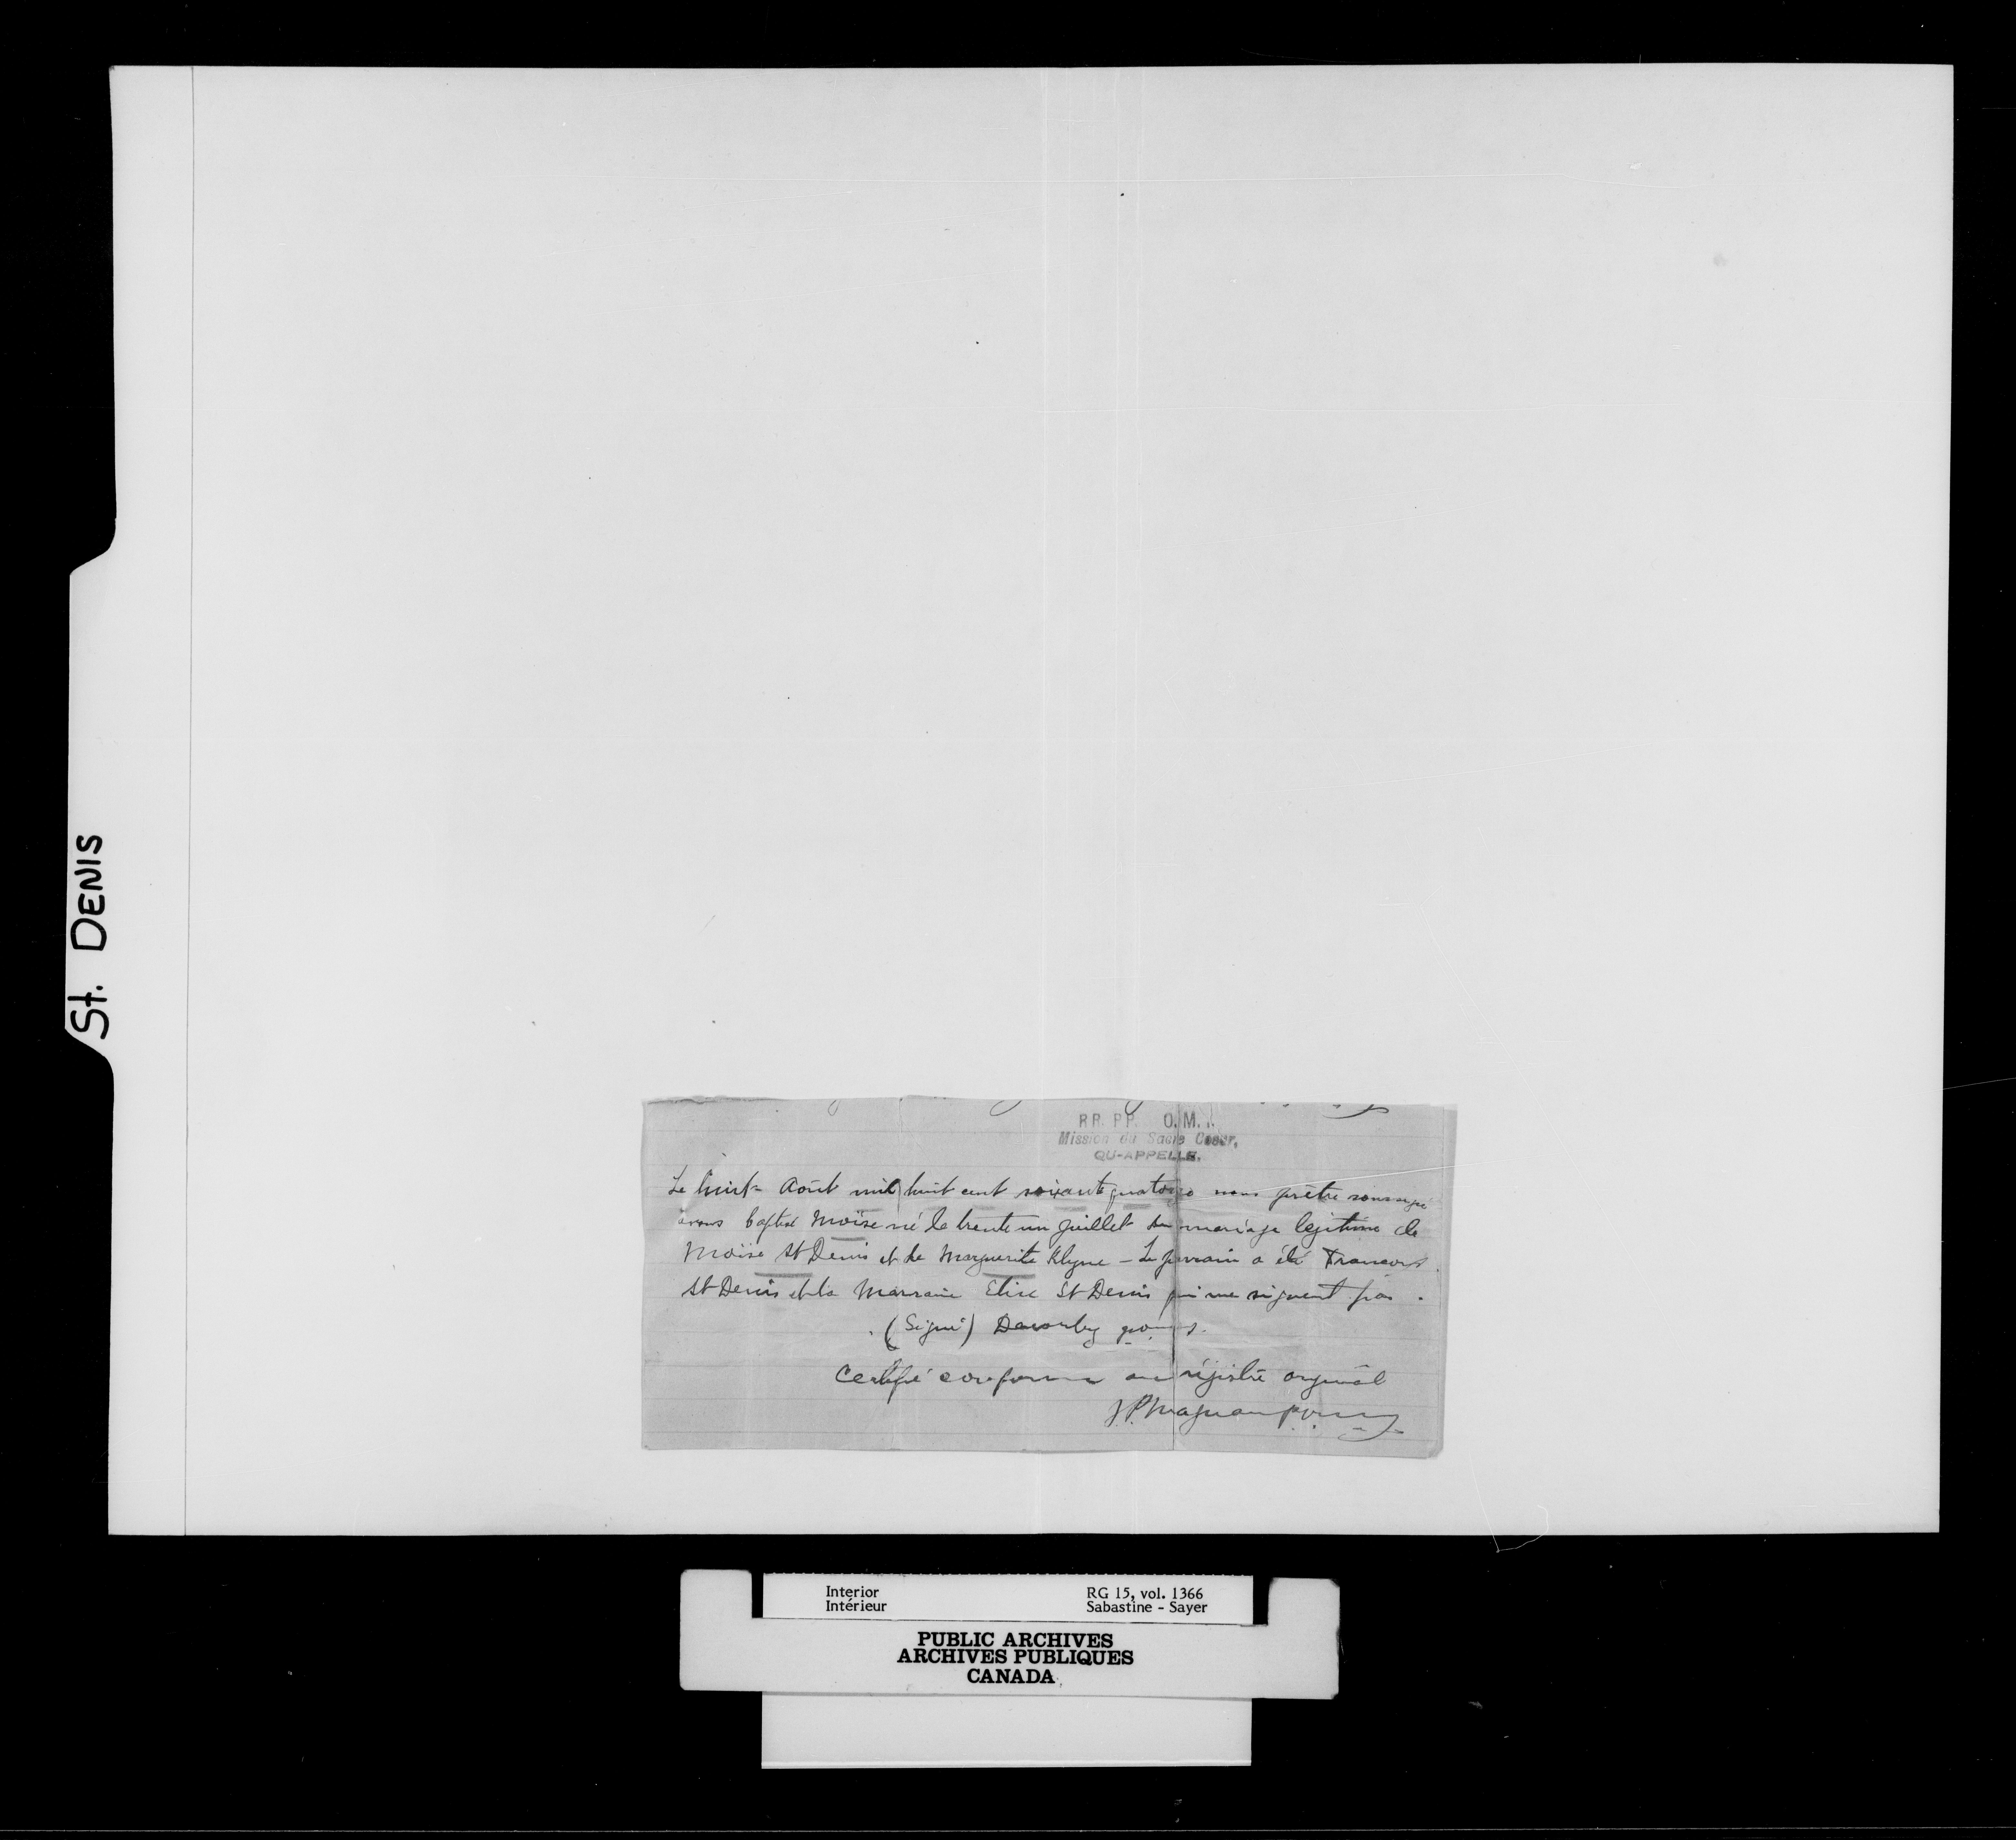 St. DENIS
RR. PP. O.M.I.
Mission du Sacré Coeur,
QU-APPELLE.
Le huit Août mil huit cent soixante quatorze nous prêtre soussigné
avons baptisé Moïse né le trente un juillet du mariage légitime de
Moïse St Denis et de Marguerite Klyne – Le parrain a été Francois
St Denis et la Marraine Elise St Denis qui ne signent pas.
(Signé) Decorby
Certifié conforme au régistre original
J.P. Magnan
Interior
Intérieur
RG 15, vol. 1366
Sabastine - Sayer
PUBLIC ARCHIVES
ARCHIVES PUBLIQUES
CANADA